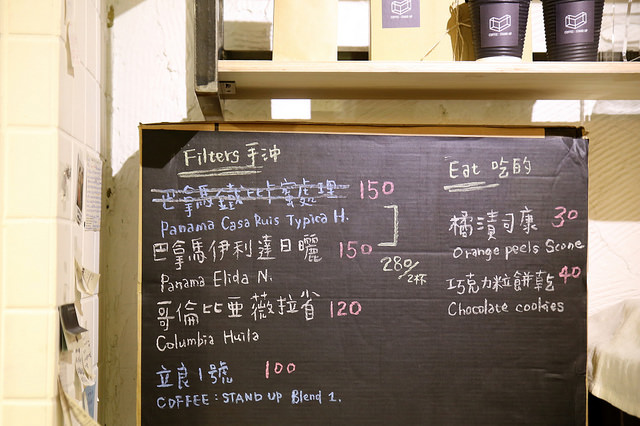 Filters 手沖
巴拿馬鐵比卡蜜處理 150
Panama Casa Ruis Typica H.
巴拿馬伊利達日曬 150
Panama Elida N.
280/2杯
哥倫比亞薇拉省 120
Columbia Huila
立良1號 100
COFFEE : STAND UP Blend 1.
Eat 吃的
橘漬司康 30
Orange peels Scone
巧克力粒餅乾 40
Chocolate cookies